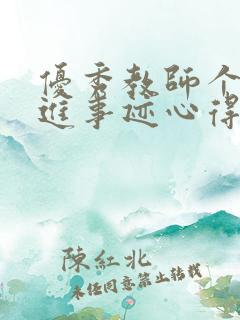 優秀教師个
進事迹心得
陳紅北
未經同意禁止轉載